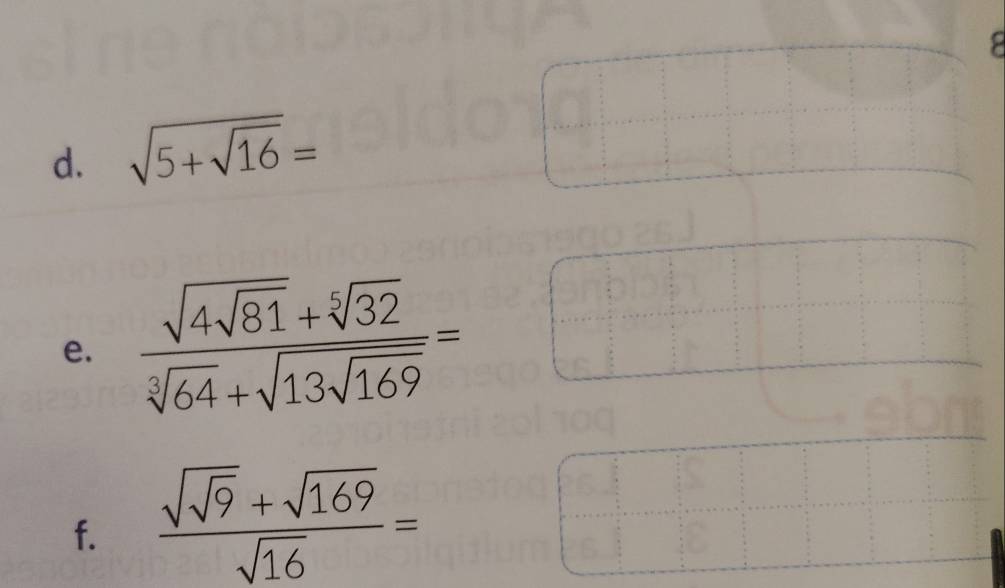 d. \sqrt{5+\sqrt{16}} =
e. \frac{\sqrt{4\sqrt{81}}+\sqrt[5]{32}}{\sqrt[3]{64}+\sqrt{13\sqrt{169}}} =
f. \frac{\sqrt{\sqrt{9}}+\sqrt{169}}{\sqrt{16}} =